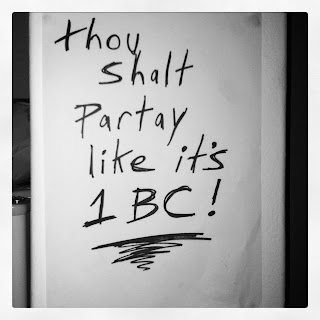 thou
shalt
Partay
like it's
1 BC!